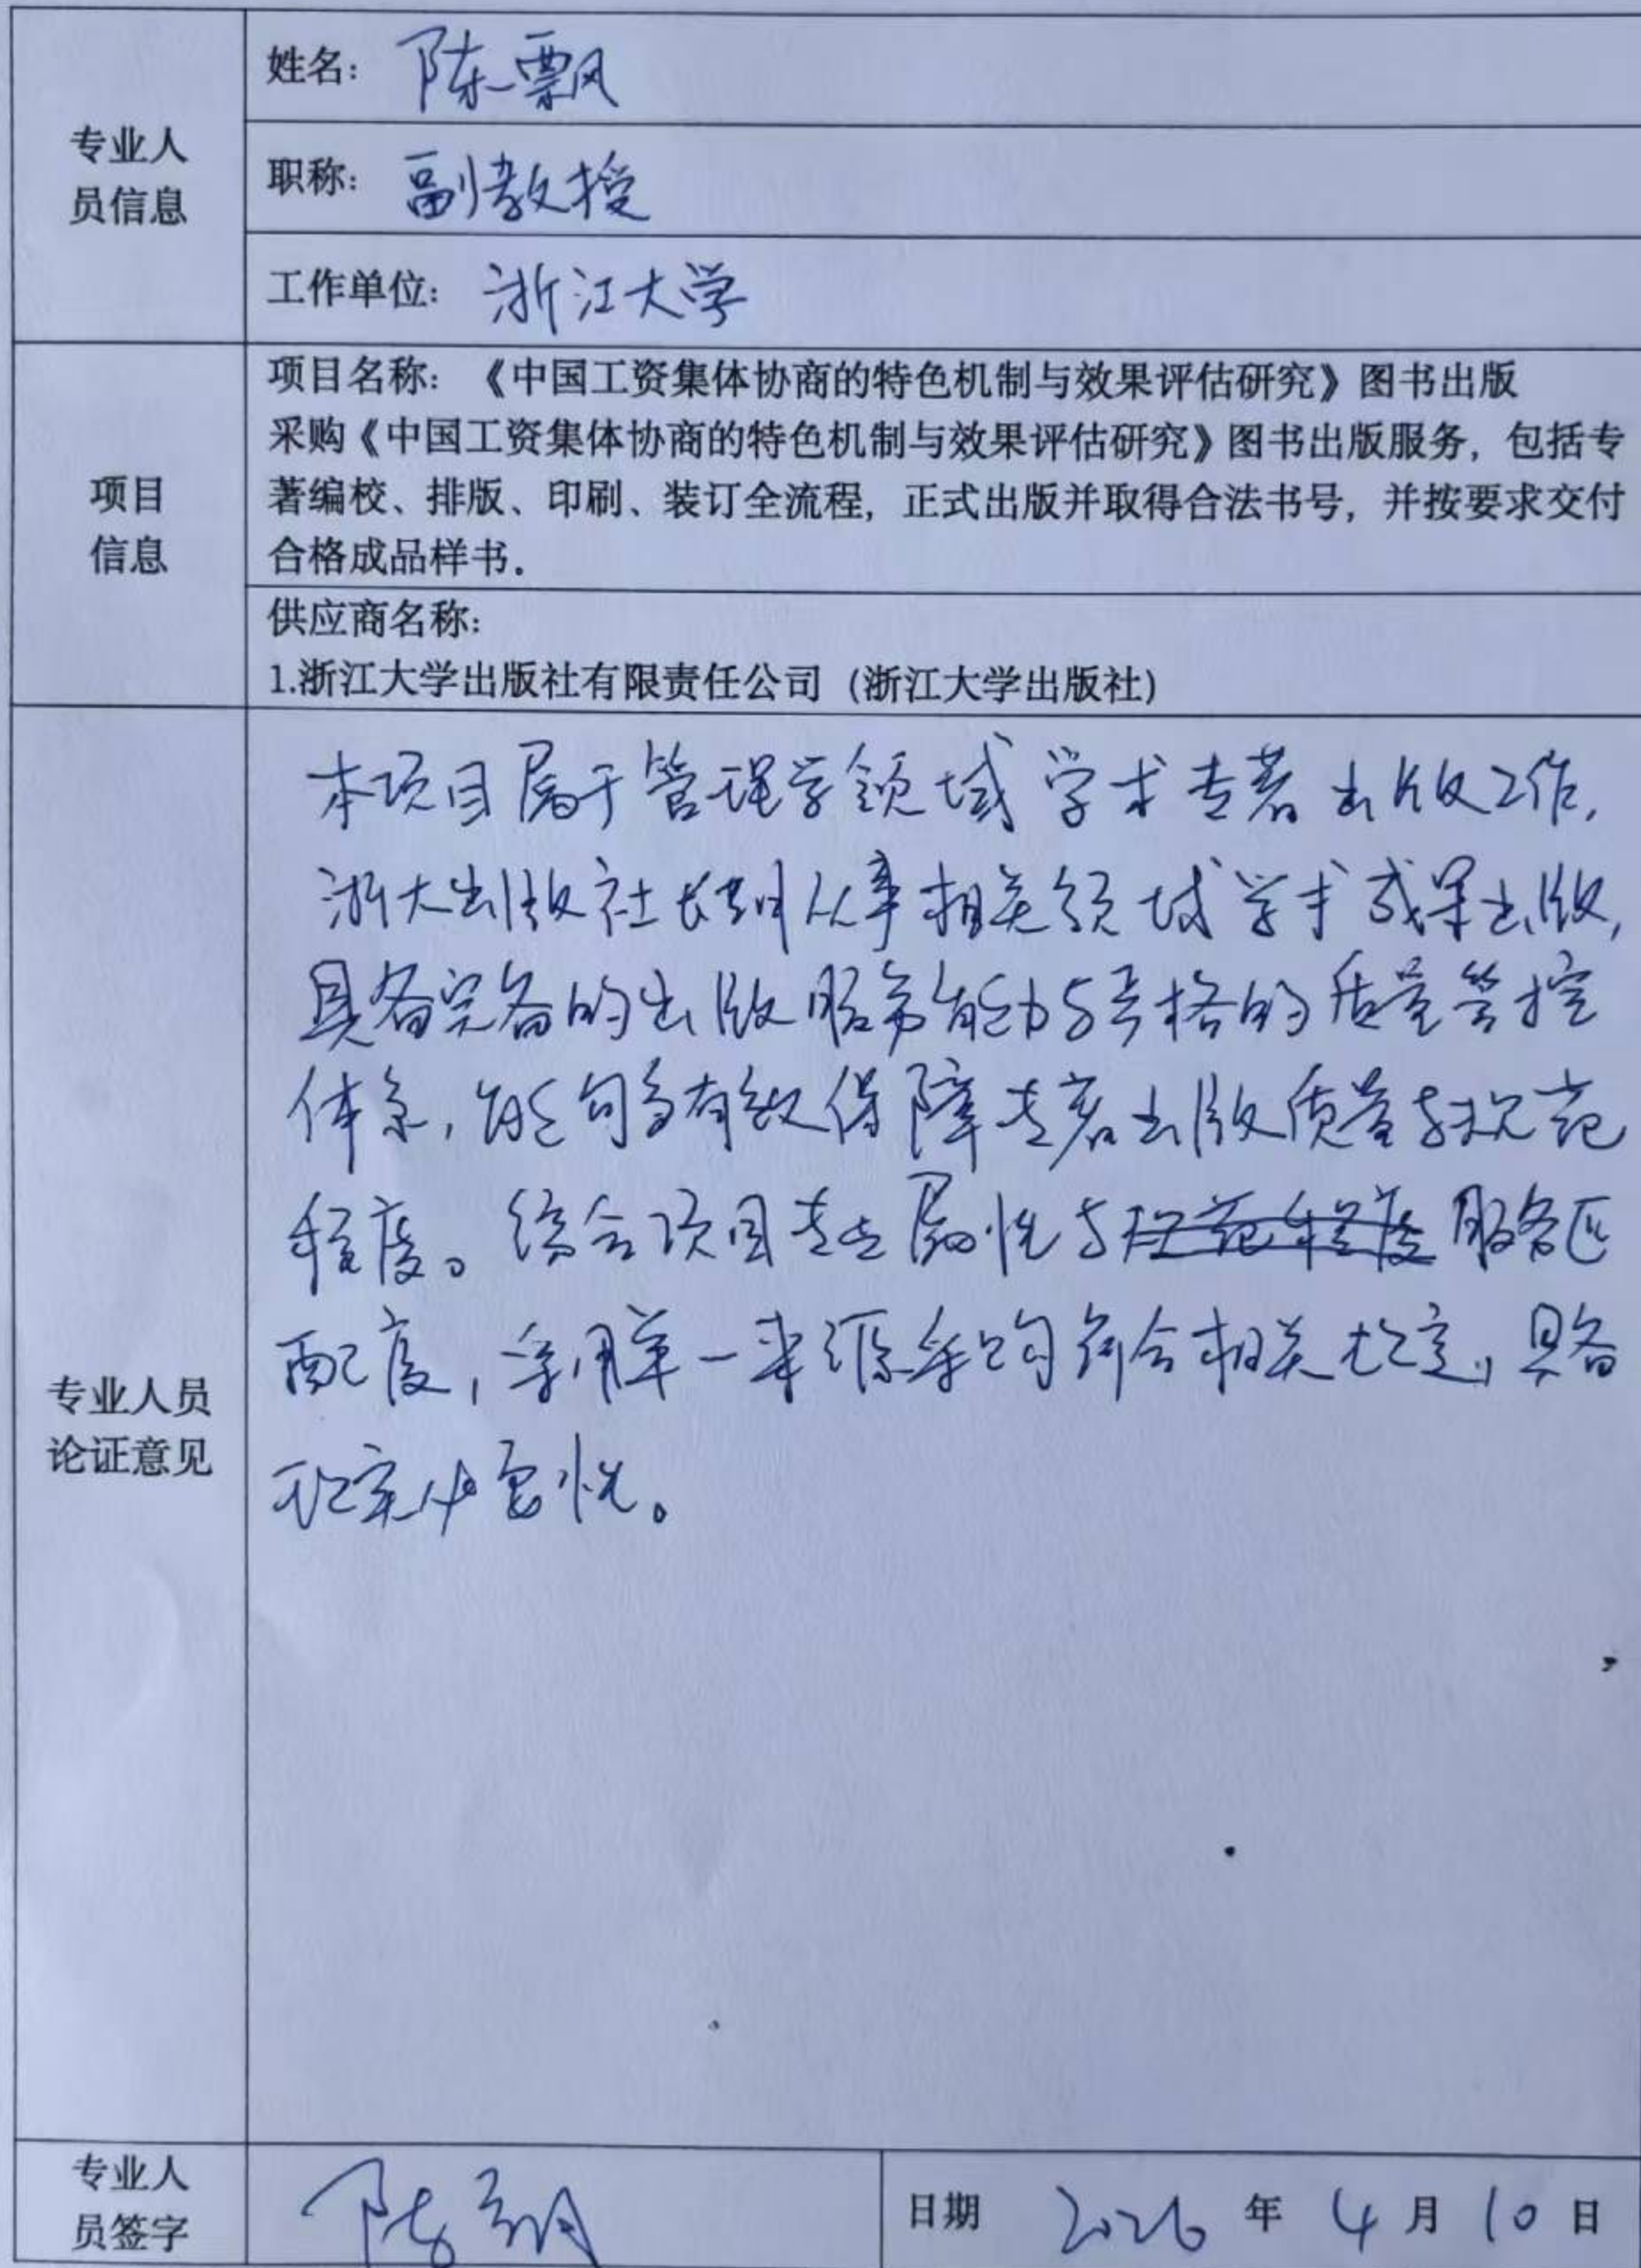 专业人
员信息
姓名：陈飘
职称：副教授
工作单位：浙江大学
项目
信息
项目名称：《中国工资集体协商的特色机制与效果评估研究》图书出版
采购《中国工资集体协商的特色机制与效果评估研究》图书出版服务，包括专
著编校、排版、印刷、装订全流程，正式出版并取得合法书号，并按要求交付
合格成品样书。
供应商名称：
1.浙江大学出版社有限责任公司（浙江大学出版社）
专业人员
论证意见
本项目属于管理学领域学术专著出版工作，
浙大出版社长期从事相关领域学术成果出版，
具备完备的出版服务能力与严格的质量管控
体系，能够有效保障专著出版质量与规范
程度。综合项目专业属性与规范程度服务匹
配度，采用单一来源采购符合相关规定，具备
现实必要性。
专业人
员签字
陈飘
日期 2026 年 4 月 10 日